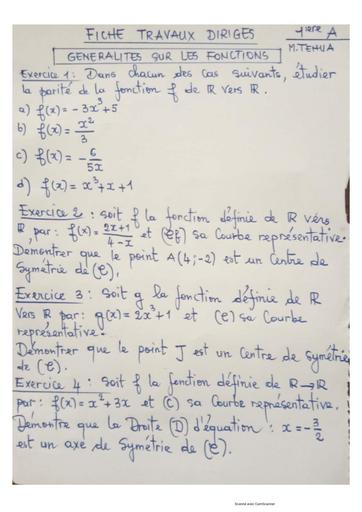 FICHE TRAVAUX DIRIGES
1ière A
M.TEHUA
GENERALITES SUR LES FONCTIONS
Exercice 1: Dans chacun des cas suivants, étudier
la parité de la fonction f de ℝ vers ℝ.
a) f(x) = -3x³+5
b) f(x) = x²/3
c) f(x) = -6/5x
d) f(x) = x³+x+1
Exercice 2 : soit f la fonction définie de ℝ vers
ℝ, par: f(x) = 2x+1/4-x et (Cf) sa Courbe représentative.
Demontrer que le point A(4;-2) est un Centre de
Symétrie de (C).
Exercice 3 : Soit g la fonction définie de ℝ
Vers ℝ par: g(x) = 2x³+1 et (C) sa Courbe
représentative.
Démontrer que le point J est un Centre de symétrie
de (C).
Exercice 4 : Soit f la fonction définie de ℝ→ℝ
par: f(x) = x²+3x et (C) sa Courbe représentative.
Démontre que la Droite (D) d'équation : x = -3/2
est un axe de Symétrie de (C).
Scanné avec CamScanner